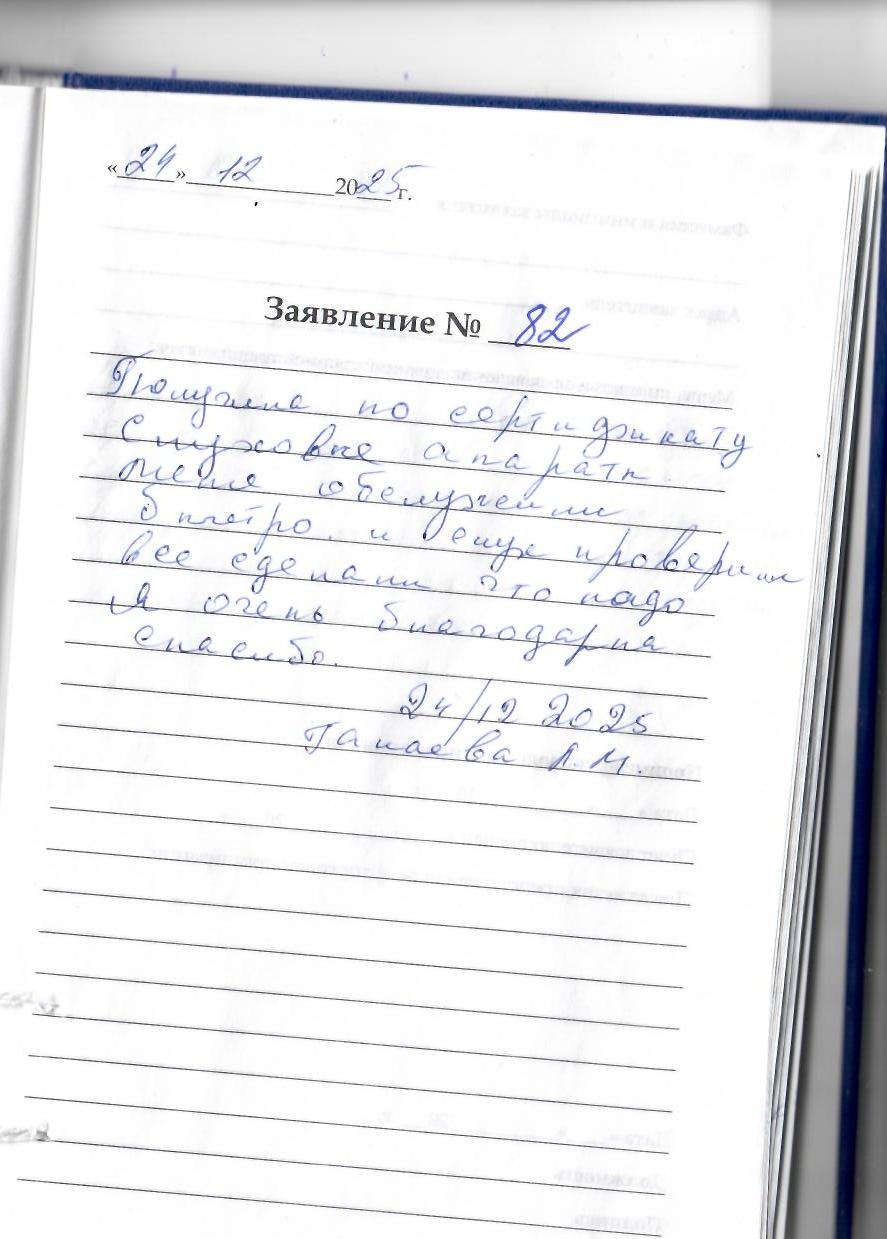 «24» 12 2025 г.
Заявление № 82
Получила по сертификату
слуховые апараты.
меня обслужили
быстро. и слух проверили
все сделали что надо
Я очень благодарна
спасибо.
24/12 2025